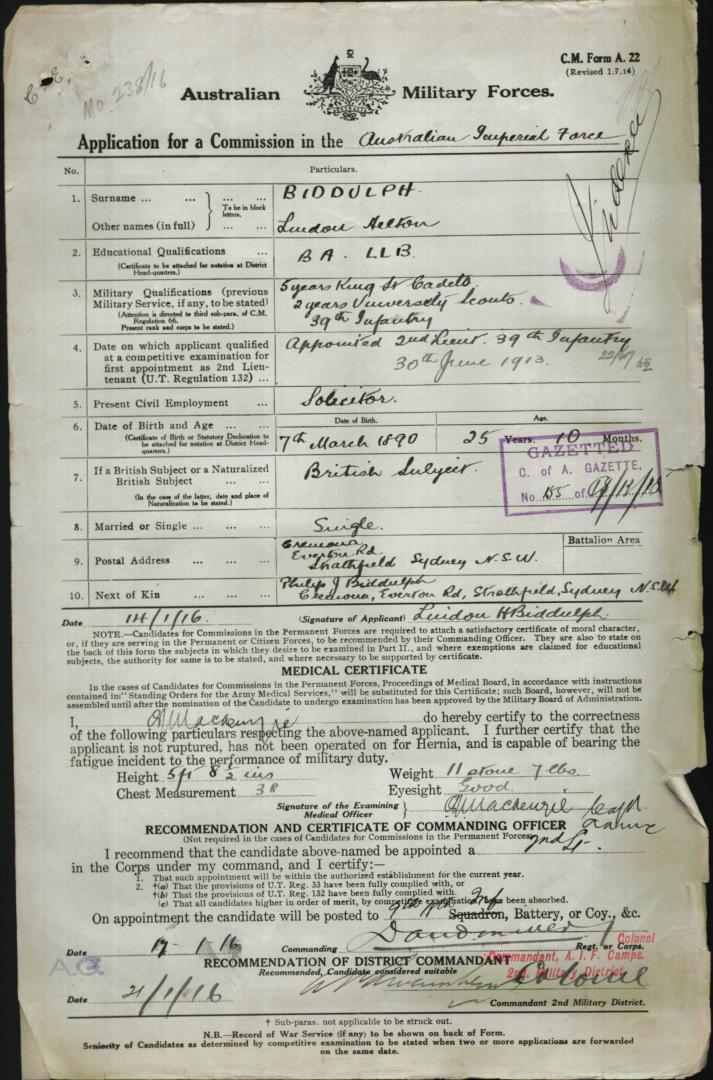 C.M. Form A. 22
(Revised 1.7.14)
Mo. 238/16
Australian Military Forces.
Application for a Commission in the Australian Imperial Force
No. Particulars.
1. Surname ... ... ... ...
To be in block letters.
BIDDULPH
Other names (in full) ... ...
2. Educational Qualifications ...
(Certificate to be attached for notation at District Head-quarters.)
BA. LLB.
3. Military Qualifications (previous Military Service, if any, to be stated)
(Attention is directed to third sub-para. of C.M. Regulation 66.
Present rank and corps to be stated.)
5 years King St Cadets.
2 years University Scouts.
39th Infantry
4. Date on which applicant qualified at a competitive examination for first appointment as 2nd Lieutenant (U.T. Regulation 132) ...
Appointed 2nd Lieut. 39th Infantry
30th June 1913.
5. Present Civil Employment ...
Solicitor.
6. Date of Birth and Age ... ...
(Certificate of Birth or Statutory Declaration to be attached for notation at District Head-quarters.)
Date of Birth. Age.
7th March 1890 25 Years. 10 Months.
GAZETTED
C. of A. GAZETTE.
No. 155 of
7. If a British Subject or a Naturalized British Subject ... ...
(In the case of the latter, date and place of Naturalization to be stated.)
British Subject.
8. Married or Single ... ... ...
Single.
9. Postal Address ... ... ...
Everton Rd
Strathfield Sydney N.S.W.
Battalion Area
10. Next of Kin ... ... ...
Philip J Biddulph
Everton Rd, Strathfield, Sydney N.S.W
Date 14/1/16. (Signature of Applicant) Lindon H Biddulph.
NOTE.—Candidates for Commissions in the Permanent Forces are required to attach a satisfactory certificate of moral character,
or, if they are serving in the Permanent or Citizen Forces, to be recommended by their Commanding Officer. They are also to state on
the back of this form the subjects in which they desire to be examined in Part II., and where exemptions are claimed for educational
subjects, the authority for same is to be stated, and where necessary to be supported by certificate.
MEDICAL CERTIFICATE
In the cases of Candidates for Commissions in the Permanent Forces, Proceedings of Medical Board, in accordance with instructions
contained in "Standing Orders for the Army Medical Services," will be substituted for this Certificate; such Board, however, will not be
assembled until after the nomination of the Candidate to undergo examination has been approved by the Military Board of Administration.
I, Mackenzie do hereby certify to the correctness
of the following particulars respecting the above-named applicant. I further certify that the
applicant is not ruptured, has not been operated on for Hernia, and is capable of bearing the
fatigue incident to the performance of military duty.
Height 5ft 8½ ins Weight 11 stone 7 lbs.
Chest Measurement 38 Eyesight Good
Signature of the Examining Medical Officer Mackenzie Capt
RECOMMENDATION AND CERTIFICATE OF COMMANDING OFFICER
(Not required in the cases of Candidates for Commission in the Permanent Forces)
I recommend that the candidate above-named be appointed a 2nd Lt.
in the Corps under my command, and I certify:—
1. That such appointment will be within the authorized establishment for the current year.
2. †(a) That the provisions of U.T. Reg. 33 have been fully complied with, or
†(b) That the provisions of U.T. Reg. 132 have been fully complied with.
(c) That all candidates higher in order of merit, by competitive examination, have been absorbed.
On appointment the candidate will be posted to Squadron, Battery, or Coy., &c.
Date 17-1-16 Commanding Regt. or Corps.
Colonel
Commandant, A. I. F. Camps.
2nd. Military District
RECOMMENDATION OF DISTRICT COMMANDANT
Recommended, Candidate considered suitable
Colonel
Date 21/1/16 Commandant 2nd Military District.
† Sub-paras. not applicable to be struck out.
N.B.—Record of War Service (if any) to be shown on back of Form.
Seniority of Candidates as determined by competitive examination to be stated when two or more applications are forwarded
on the same date.